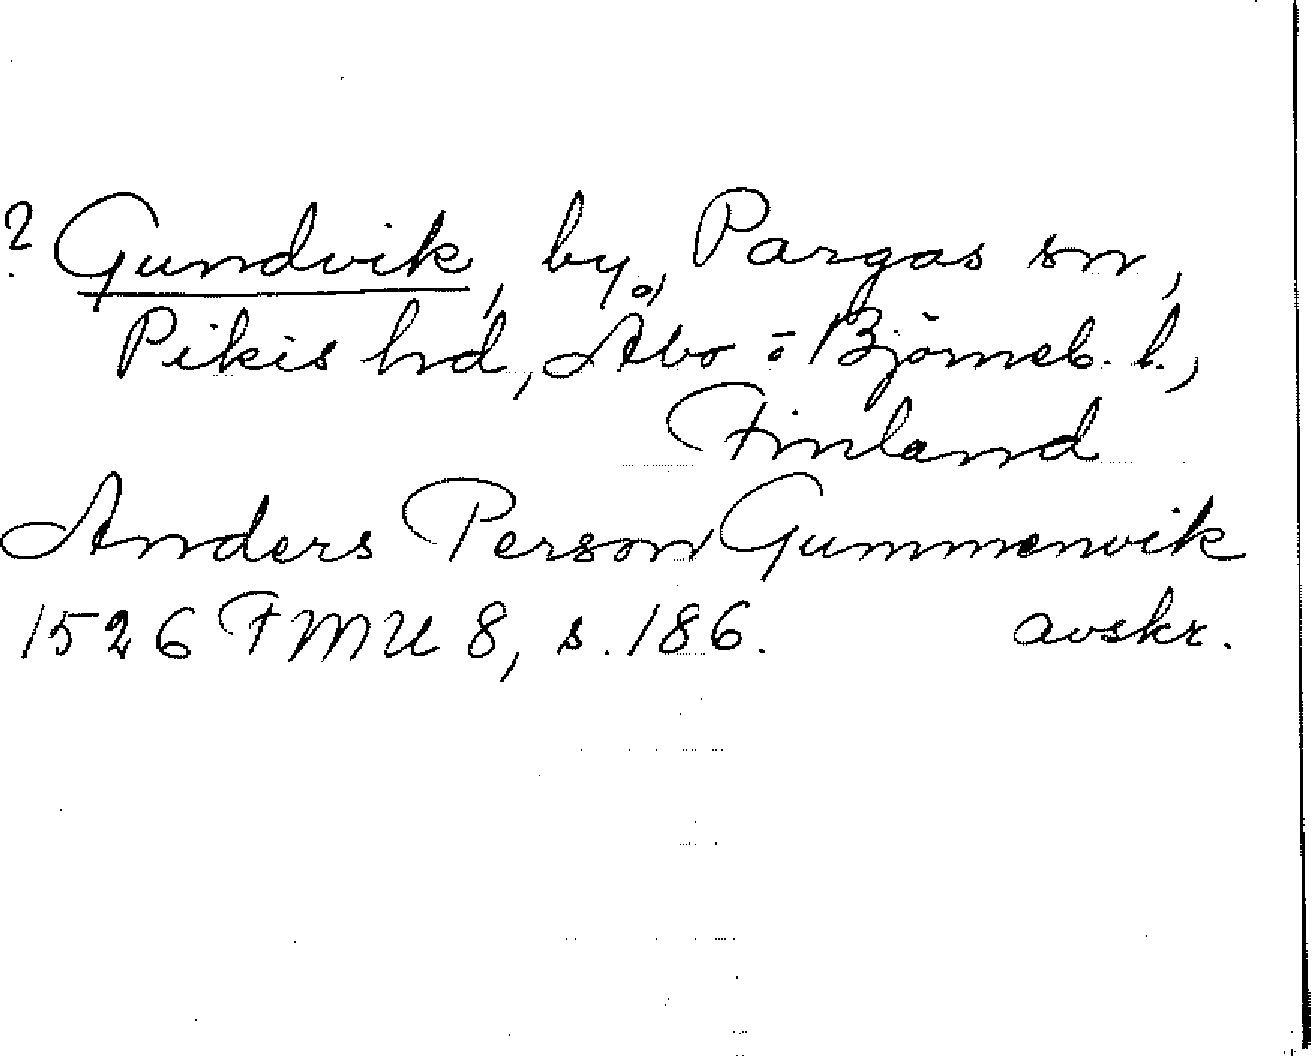 ? Gundvik, by, Pargas sn,
Pikis hd, Åbo = Björneb. l.,
Finland
Anders Person Gummenvik
1526 FMU 8, s. 186. avskr.